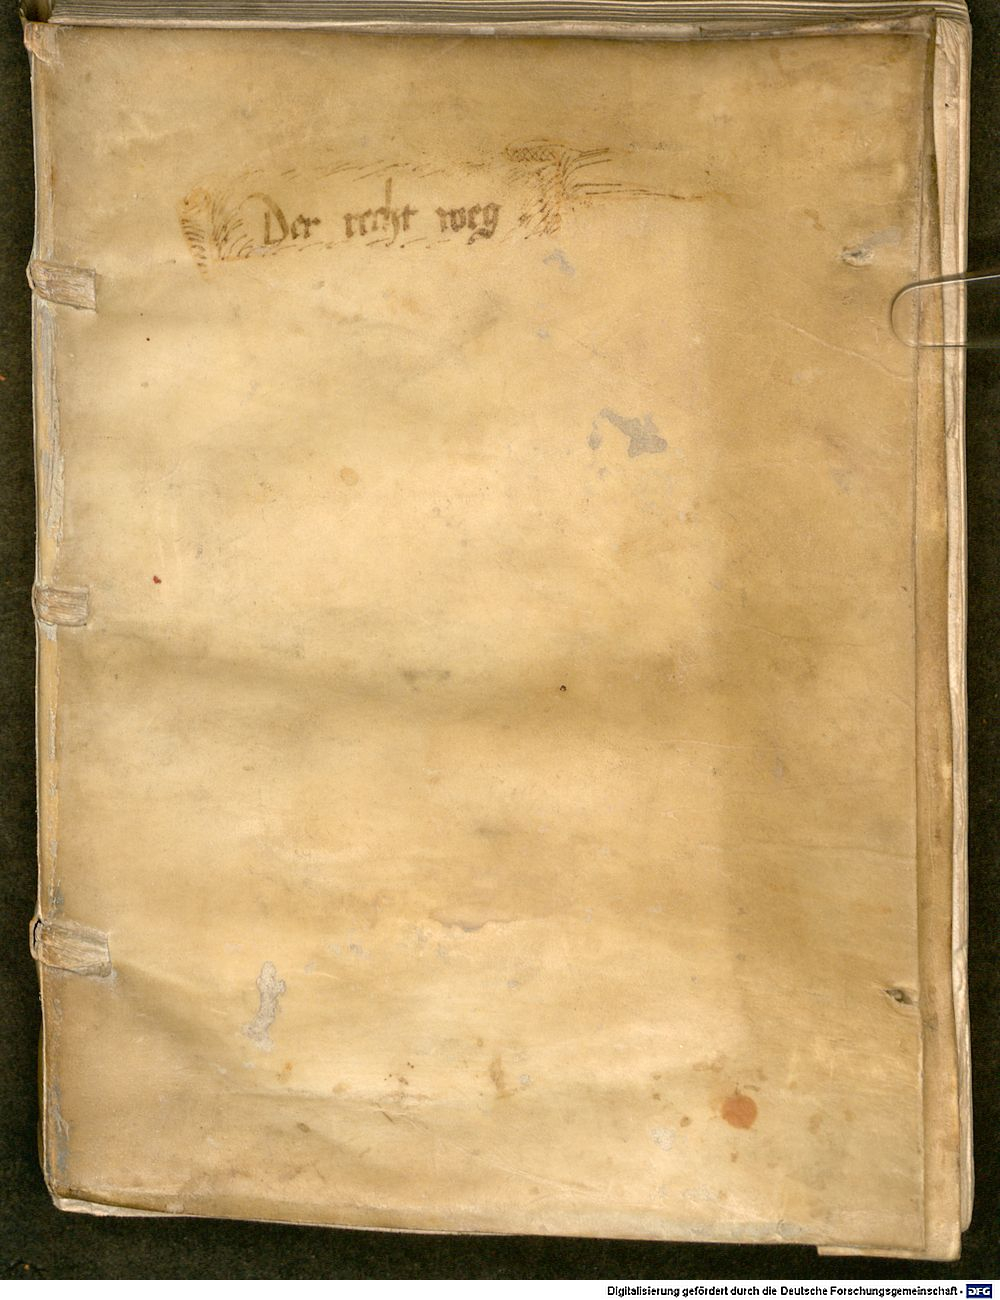 Der recht weg
Digitalisierung gefördert durch die Deutsche Forschungsgemeinschaft - DFG